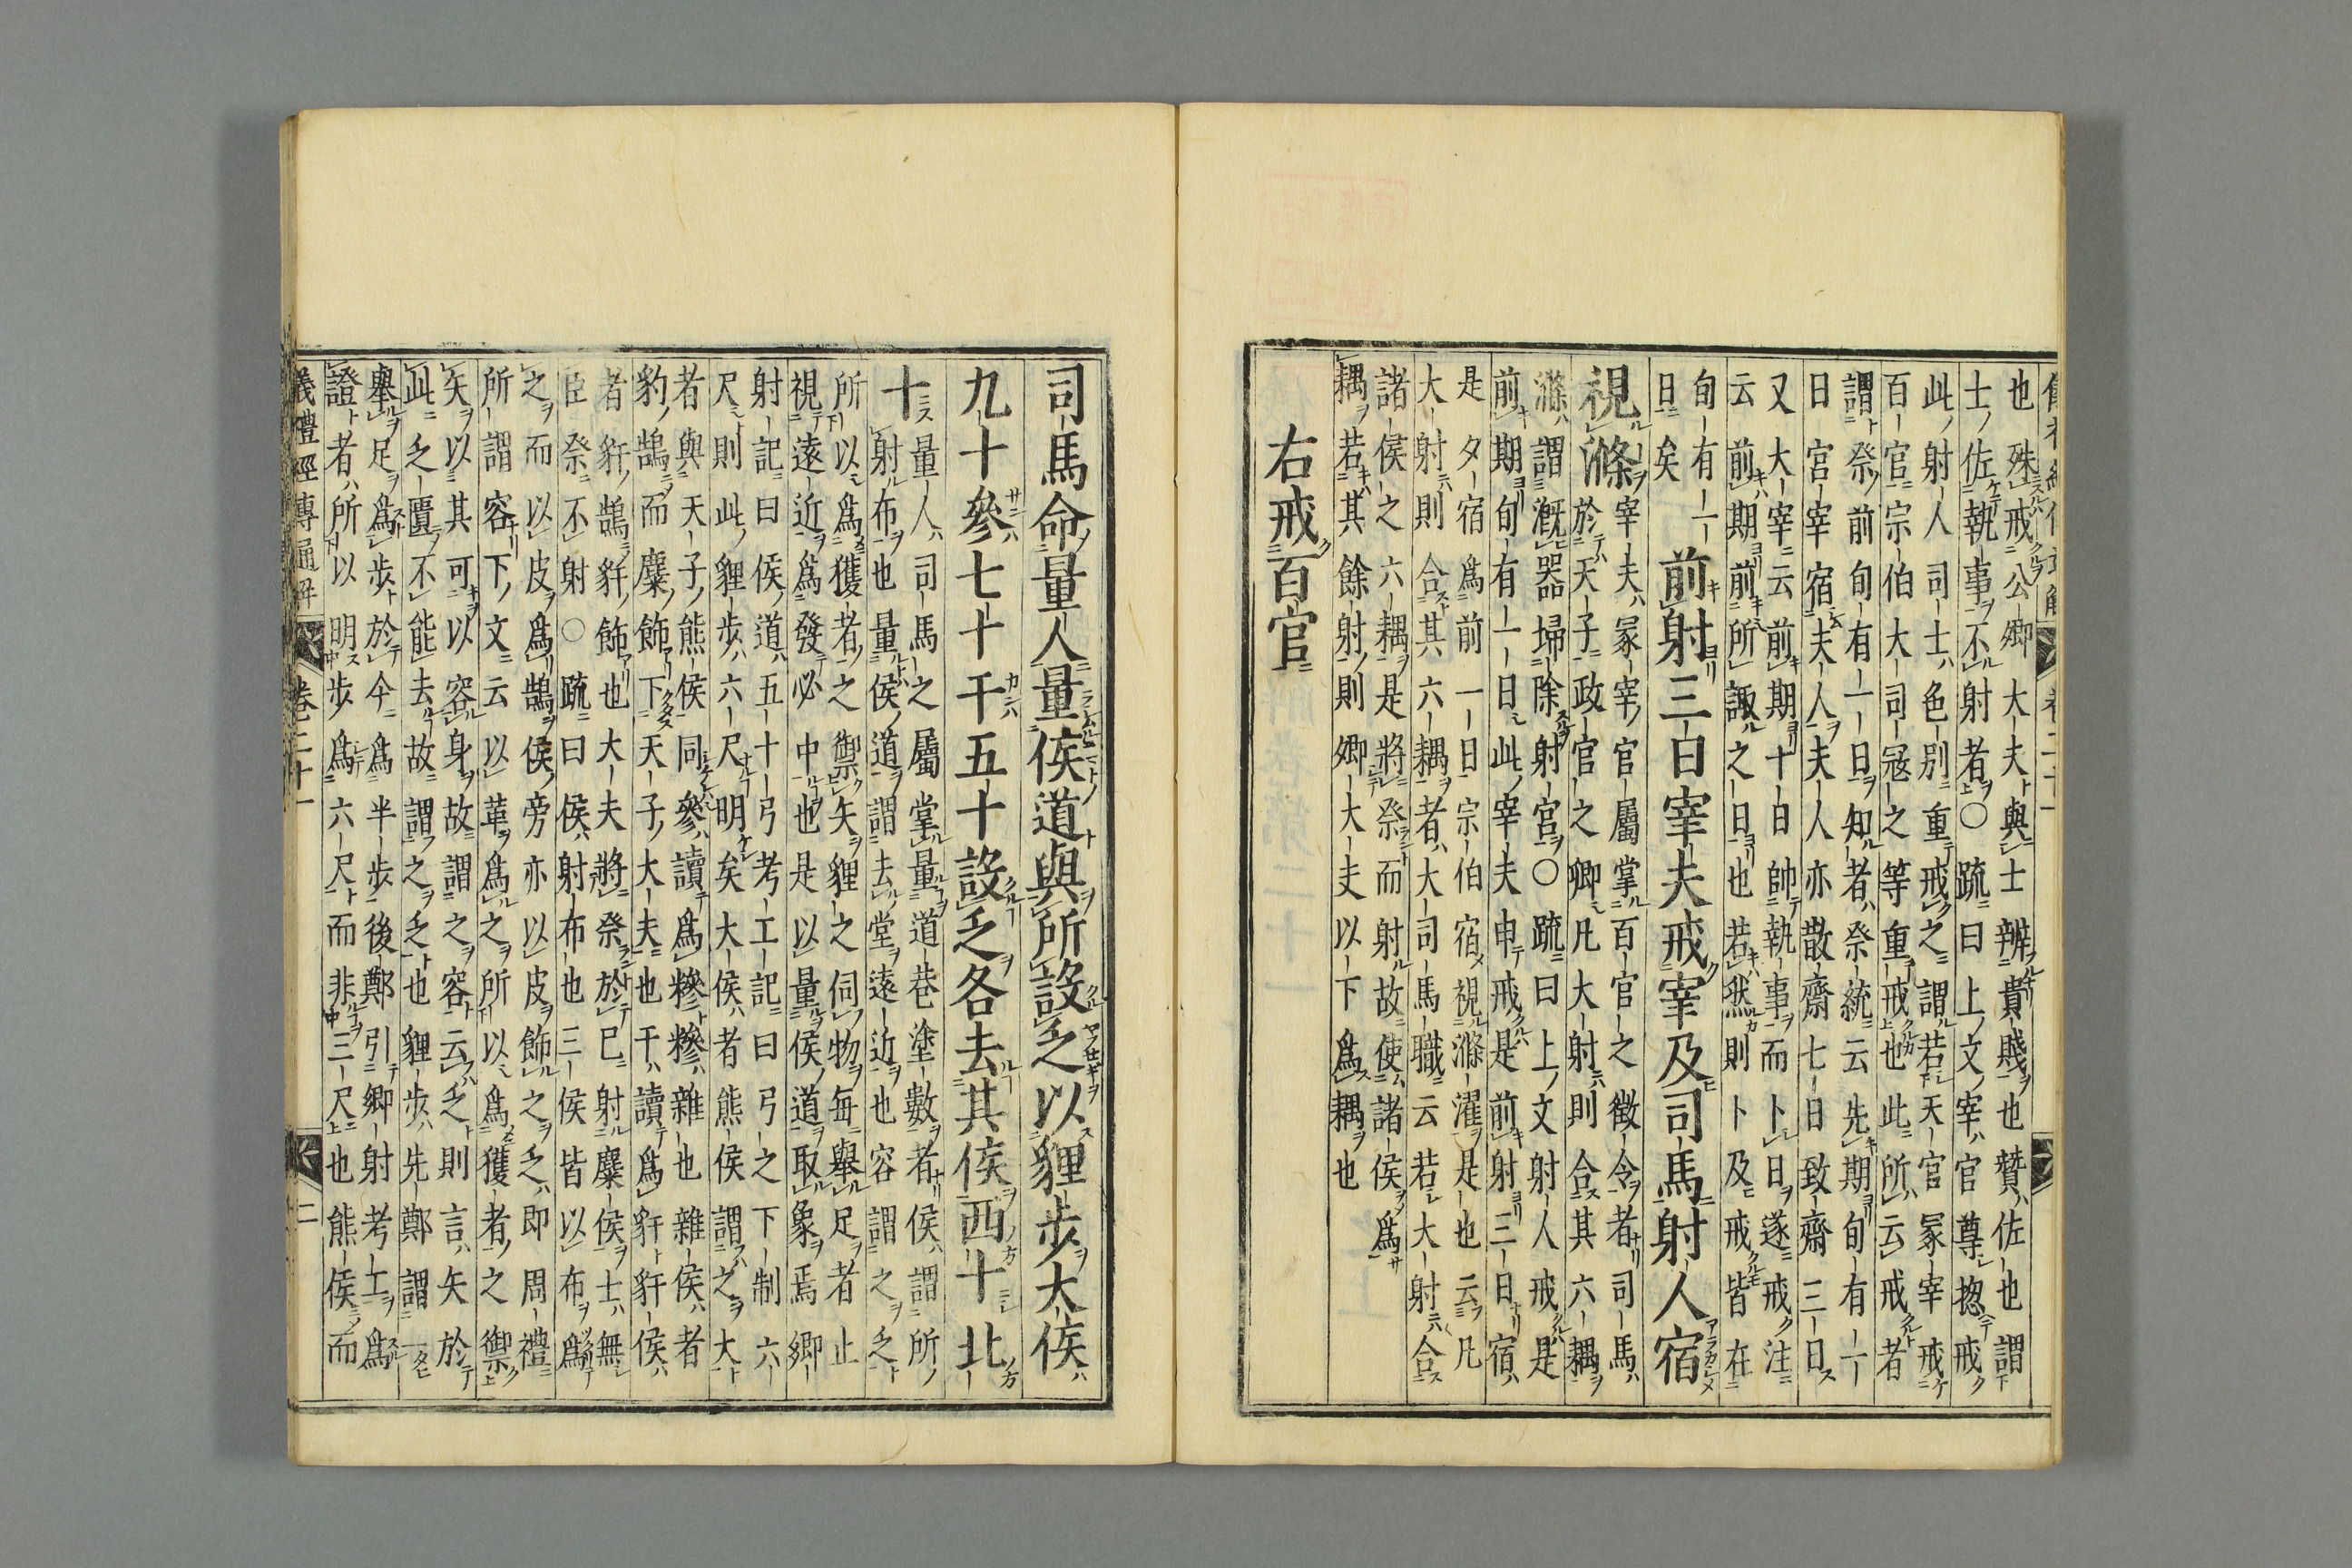 也殊戒公卿大夫與士辨貴賤也贊佐也謂
士佐執事不射者○疏曰上文宰官尊揔戒
此射人司士色別重戒之謂若天官冢宰戒
百官宗伯大司冦之等重戒也此所云戒者
謂祭前旬有一日知者祭統云先期旬有一
日宮宰宿夫人夫人亦散齋七日致齋三日
又大宰云前期十日帥執事而卜日遂戒注
云前期前所諏之日也若然則卜及戒皆在
旬有一
日矣
前射三日宰夫戒宰及司馬射人宿
視滌
宰夫冢宰官屬掌百官之徵令者司馬
於天子政官之卿凡大射則合其六耦
滌謂漑器埽除射宮○疏曰上文射人戒是
前期旬有一日此宰夫申戒是前射三日宿
是夕宿爲前一日宗伯宿視滌濯是也云凡
大射則合其六耦者大司馬職云若大射合
諸侯之六耦是將祭而射故使諸侯爲
耦若其餘射則卿大夫以下爲耦也
右戒百官
司馬命量人量侯道與所設乏以貍步大侯
九十參七十干五十設乏各去其侯西十北
十
量人司馬之屬掌量道巷塗數者侯謂所
射布也量侯道謂去堂遠近也容謂之乏
所以爲獲者之禦矢貍之伺物每舉足者止
視遠近爲發必中也是以量侯道取象焉鄉
射記曰侯道五十弓考工記曰弓之下制六
尺則此貍步六尺明矣大侯者熊侯謂之大
者與天子熊侯同參讀爲糝糝雜也雜侯者
豹鵠而麋飾下天子大夫也干讀爲豻豻侯
者豻鵠豻飾也大夫將祭於已射麋侯士無
臣祭不射○疏曰侯射布也三侯皆以布爲
之而以皮爲鵠侯旁亦以皮飾之乏即周禮
所謂容下文云以革爲之所以爲獲者之禦
矢以其可以容身故謂之容云乏則言矢於
此乏匱不能去故謂之乏也貍步先鄭謂一
舉足爲步於今爲半步後鄭引鄉射考工爲
證者所以明步爲六尺而非三尺也熊侯而
儀禮經傳通解 卷二十一 二